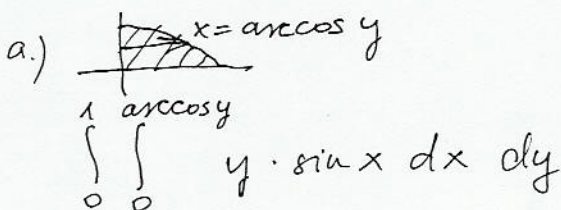 a.) x = arccos y
1 arccos y
∫ ∫ y · sin x dx dy
0 0